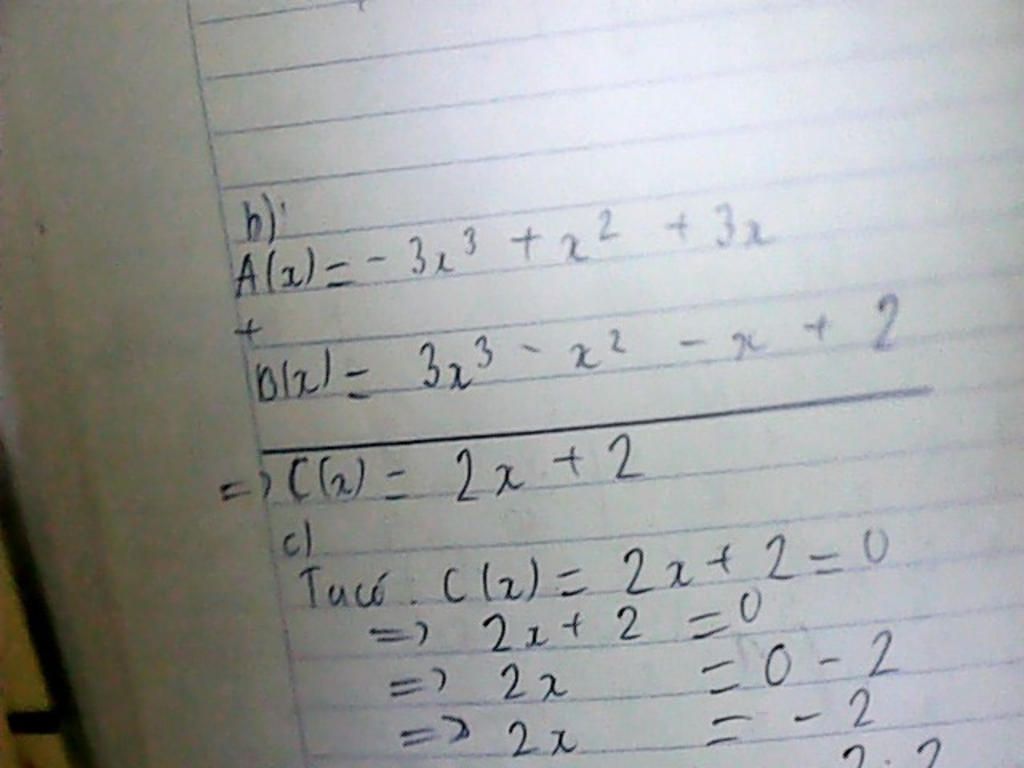 b)
A(x) = - 3x³ + x² + 3x
+
B(x) = 3x³ - x² - x + 2
=> C(x) = 2x + 2
c)
Ta có: C(x) = 2x + 2 = 0
=> 2x + 2 = 0
=> 2x = 0 - 2
=> 2x = - 2